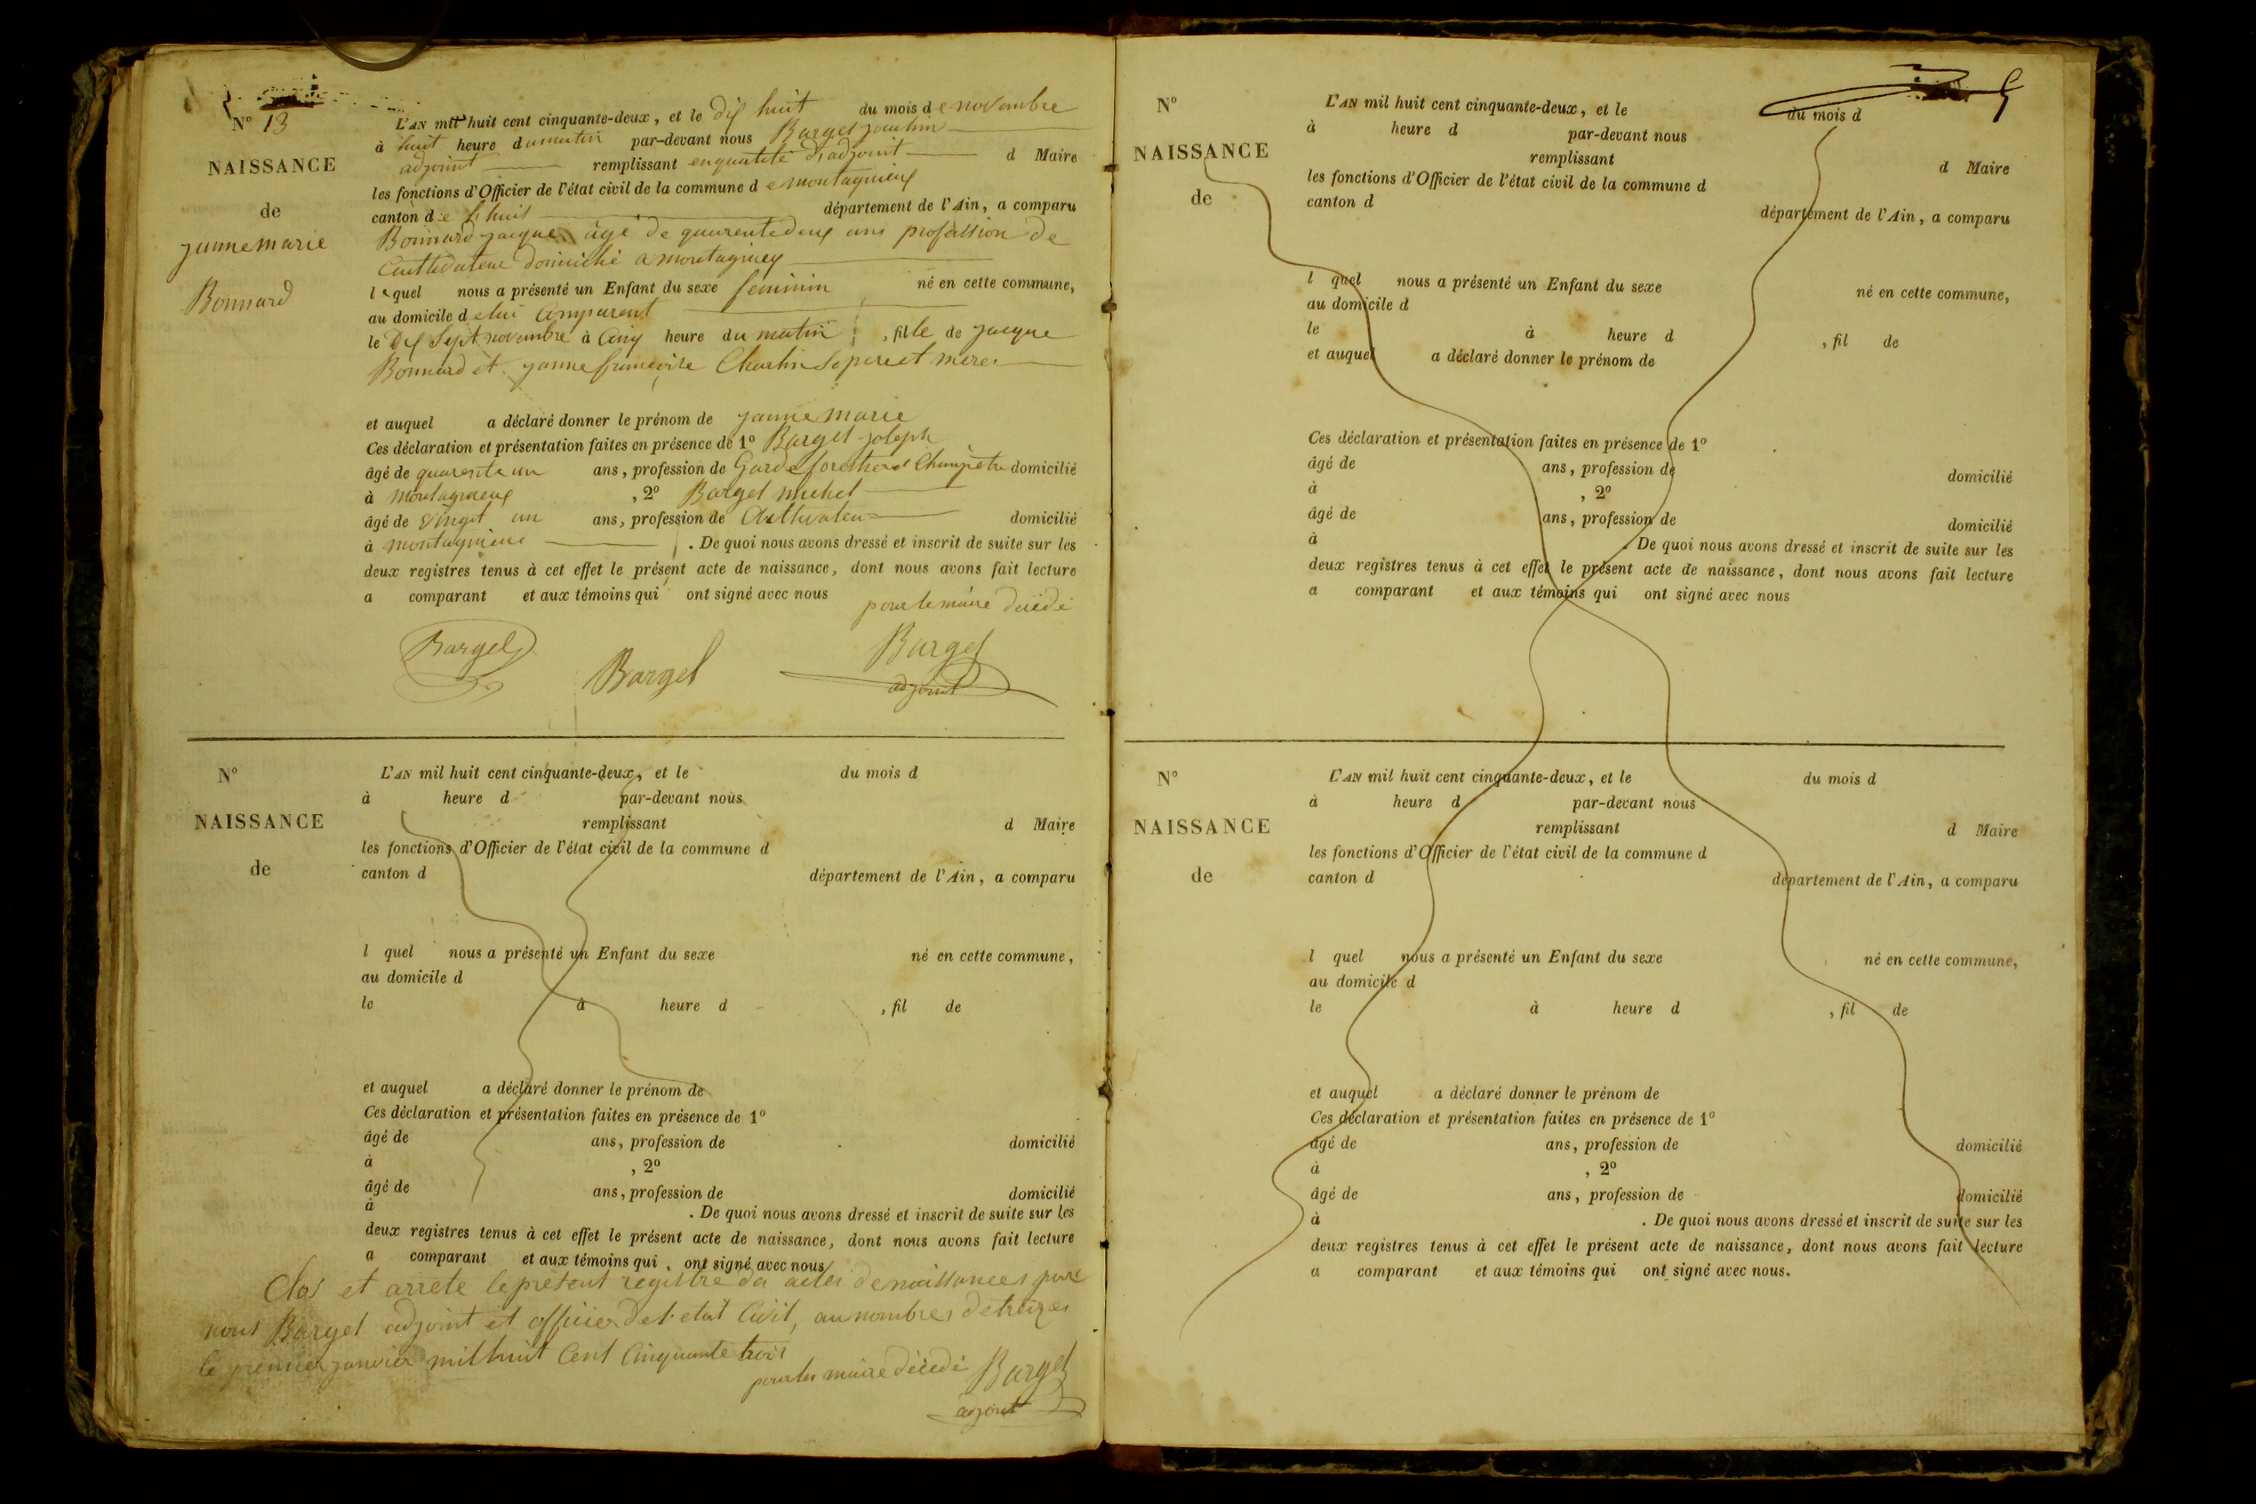 N° 13
NAISSANCE
de
jannemarie
Bonnard
L'AN mil huit cent cinquante-deux, et le dix huit du mois de novembre
à huit heure du matin par-devant nous Barget
adjoint remplissant enqualité d'adjoint d Maire
les fonctions d'Officier de l'état civil de la commune de montagnieux
canton de Lhuis département de l'Ain, a comparu
Bonnard jacque agé de quarentedeux ans profession de
Cultivateur domicilié a montagnieux
lequel nous a présenté un Enfant du sexe feminin né en cette commune,
au domicile de lui Comparent
le dix Sept novembre à Cinq heure du matin, fille de jacque
Bonnard et jannefrancoise Charlin Se pere et mere
et auquel a déclaré donner le prénom de janne marie
Ces déclaration et présentation faites en présence de 1° Barget joseph
âgé de quarente un ans, profession de Garde forestier et Champetre domicilié
à montagnieux, 2° Barget michel
âgé de vingt un ans, profession de Cultivateur domicilié
à montagnieux. De quoi nous avons dressé et inscrit de suite sur les
deux registres tenus à cet effet le présent acte de naissance, dont nous avons fait lecture
a comparant et aux témoins qui ont signé avec nous
pour le maire décédé
Barget Barget Barget
adjoint
N°
NAISSANCE
de
L'AN mil huit cent cinquante-deux, et le du mois d
à heure d par-devant nous
remplissant d Maire
les fonctions d'Officier de l'état civil de la commune d
canton d département de l'Ain, a comparu
l quel nous a présenté un Enfant du sexe né en cette commune,
au domicile d
le à heure d , fil de
et auquel a déclaré donner le prénom de
Ces déclaration et présentation faites en présence de 1°
âgé de ans, profession de domicilié
à , 2°
âgé de ans, profession de domicilié
à . De quoi nous avons dressé et inscrit de suite sur les
deux registres tenus à cet effet le présent acte de naissance, dont nous avons fait lecture
a comparant et aux témoins qui ont signé avec nous
Clos et arrete leprésent registre des actes de naissances pare
nous Barget adjoint et officier del'etat Civil, au nombre de treize
le premier janvier mil huit Cent Cinquante trois
pour les maire décédé Barget
adjoint
N°
NAISSANCE
de
L'AN mil huit cent cinquante-deux, et le du mois d
à heure d par-devant nous
remplissant d Maire
les fonctions d'Officier de l'état civil de la commune d
canton d département de l'Ain, a comparu
l quel nous a présenté un Enfant du sexe né en cette commune,
au domicile d
le à heure d , fil de
et auquel a déclaré donner le prénom de
Ces déclaration et présentation faites en présence de 1°
âgé de ans, profession de domicilié
à , 2°
âgé de ans, profession de domicilié
à . De quoi nous avons dressé et inscrit de suite sur les
deux registres tenus à cet effet le présent acte de naissance, dont nous avons fait lecture
a comparant et aux témoins qui ont signé avec nous
N°
NAISSANCE
de
L'AN mil huit cent cinquante-deux, et le du mois d
à heure d par-devant nous
remplissant d Maire
les fonctions d'Officier de l'état civil de la commune d
canton d département de l'Ain, a comparu
l quel nous a présenté un Enfant du sexe né en cette commune,
au domicile d
le à heure d , fil de
et auquel a déclaré donner le prénom de
Ces déclaration et présentation faites en présence de 1°
âgé de ans, profession de domicilié
à , 2°
âgé de ans, profession de domicilié
à . De quoi nous avons dressé et inscrit de suite sur les
deux registres tenus à cet effet le présent acte de naissance, dont nous avons fait lecture
a comparant et aux témoins qui ont signé avec nous.